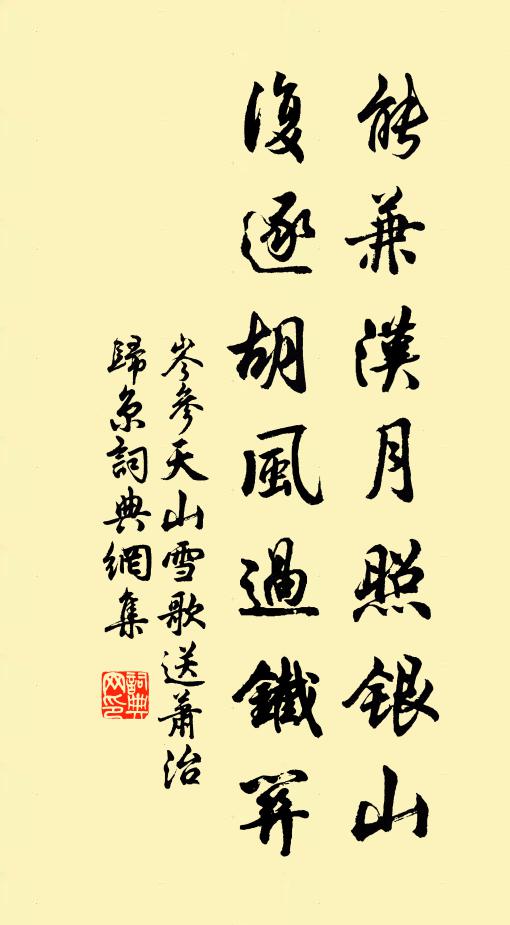 能兼漢月照銀山
復逐胡風過鐵關
岑參天山雪歌送蕭治
歸京詞典網集
詞典
网印